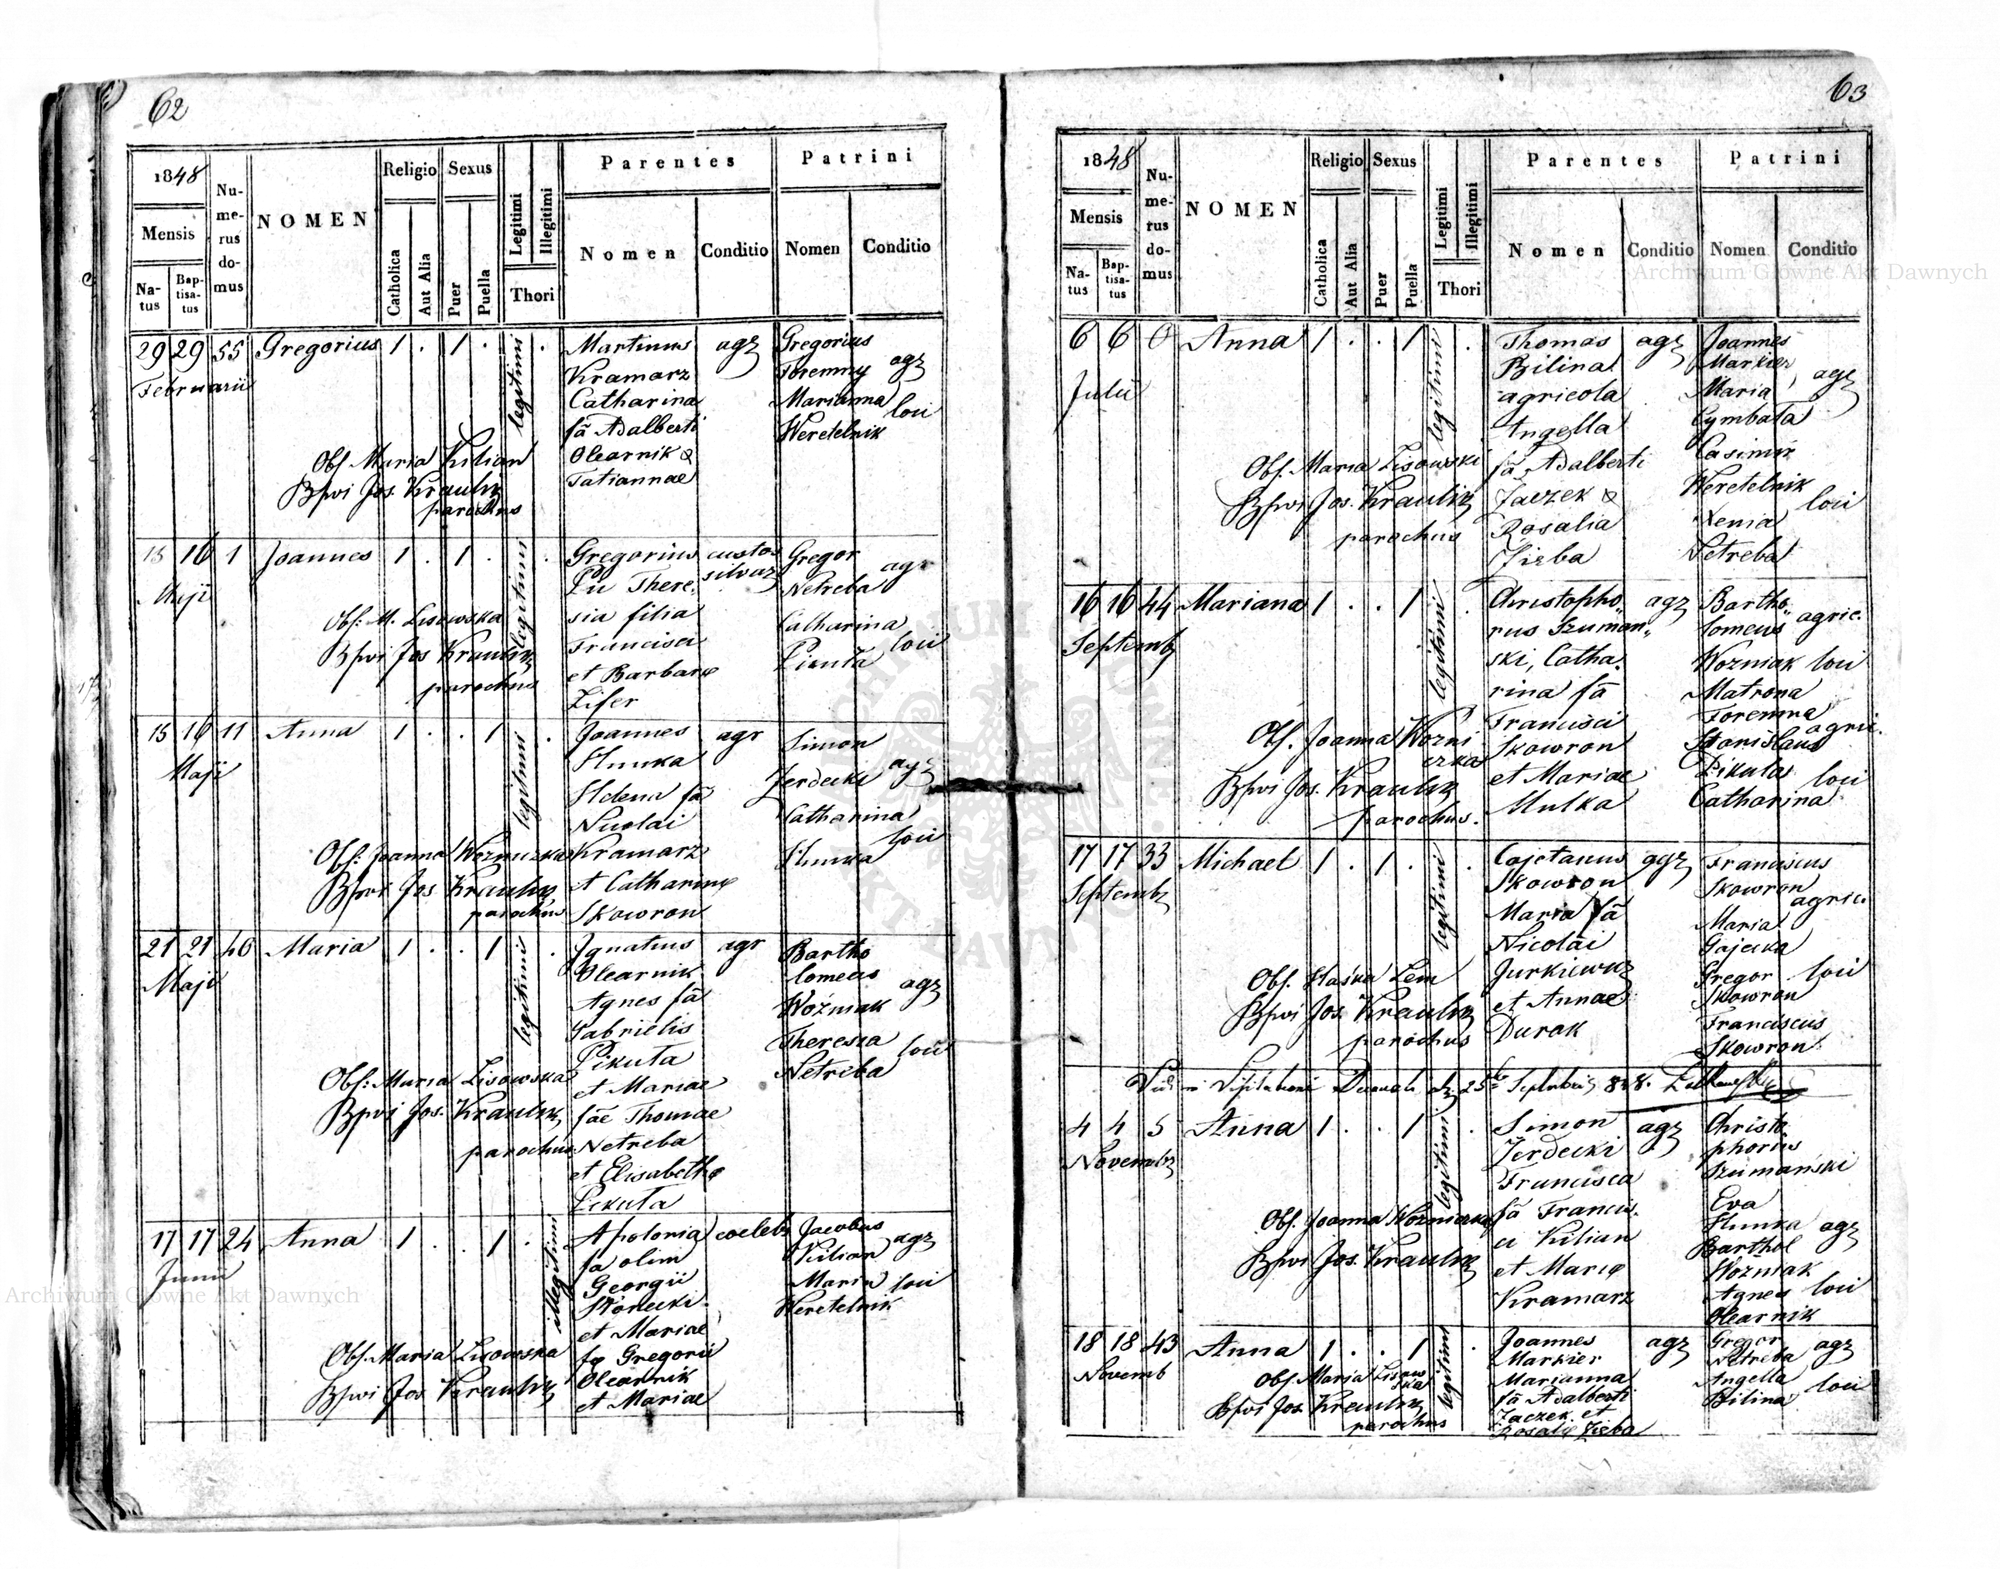 62
1848
Mensis
Natus
Baptisatus
Numerus domus
NOMEN
Religio
Catholica
Aut Alia
Sexus
Puer
Puella
Legitimi
Illegitimi
Thori
Parentes
Nomen
Conditio
Patrini
Nomen
Conditio
29 29 55 Gregorius 1 . 1 . legitimi .
Februarii
Martinus agr
Kramarz
Catharina
fa Adalberti
Olearnik &
Tatiannae
Gregorius
Foremny agr
Marianna loci
Weretelnik
Obs. Maria Kilian
Bpvi Jos. Kraulik
parochus
15 16 1 Joannes 1 . 1 . legitimi .
Maji
Gregorius custos
silvar
sia filia
Francisci
et Barbarae
Zifer
Gregor agr
Netreba
Catharina
Pikuta loci
Obs: M. Lisowska
Bpvi Jos Kraulik
parochus
15 16 11 Anna 1 . . 1 legitimi .
Maji
Joannes agr
Helena fa
Nicolai
Kramarz
et Catharinae
Skowron
Simon
Zerdecki agr
Catharina
loci
Obs: Joanna Wozniczka
Bpvi Jos Kraulik
parochus
21 21 40 Maria 1 . . 1 legitimi .
Maji
Ignatius agr
Olearnik
Agnes fa
Gabrielis
Pikuta
et Mariae
fae Thomae
Netreba
et Elisabethae
Pikuta
Bartho
lomeus agr
Woźniak
Theresia
Netreba loci
Obs: Maria Lisowska
Bpvi Jos. Kraulik
parochus
17 17 24 Anna 1 . . 1 . illegitimi
Junii
Apolonia coelebs
fa olim
Georgii
et Mariae
fae Gregorii
Olearnik
et Mariae
Jacobus
Kilian agr
Maria loci
Weretelnik
Obs. Maria Lisowska
Bpvi Jos Kraulik
63
1848
Mensis
Natus
Baptisatus
Numerus domus
NOMEN
Religio
Catholica
Aut Alia
Sexus
Puer
Puella
Legitimi
Illegitimi
Thori
Parentes
Nomen
Conditio
Patrini
Nomen
Conditio
6 6 0 Anna 1 . . 1 legitimi .
Julii
Thomas agr
Bilina
agricola
Angella
fa Adalberti
Zaczek &
Rosalia
Zięba
Joannes
Markier
Maria agr
Cymbała
Casimir
Weretelnik
Xenia loci
Netreba
Obs. Maria Lisowski
Bpvi Jos. Kraulik
parochus
16 16 44 Mariana 1 . . 1 legitimi .
Septemb
Christopho agr
rus Szuman
ski, Catha
rina fa
Francisci
Skowron
et Mariae
Mulka
Bartho
lomeus agric.
Wozniak loci
Matrona
Foremna
Stanislaus agric.
Pikuta loci
Catharina
Obs. Joanna Wozni
czka
Bpvi Jos. Kraulik
parochus.
17 17 33 Michael 1 . 1 . legitimi .
Septemb
Cajetanus agr
Skowron
Maria fa
Nicolai
Jurkiewicz
et Annae
Durak
Franciscus
Skowron
Maria agric
Gajecka
Gregor loci
Skowron
Franciscus
Skowron
Obs. Kaśka Lem
Bpvi Jos. Kraulik
parochus
4 4 5 Anna 1 . . 1 legitimi .
Novemb
Simon agr
Zerdecki
Francisca
fa Francis
ci Kilian
et Mariae
Kramarz
Christo
phorus
Szumański
Eva
agr
Barthol
Woźniak
Agnes loci
Olearnik
Obs. Joanna Wozniczka
Bpvi Jos. Kraulik
18 18 43 Anna 1 . . 1 legitimi .
Novemb
Joannes agr
Markier
Marianna
fa Adalberti
Zaczek et
Rosaliae Zięba
Gregor
Netreba agr
Angella
Bilina loci
Obs Maria Lisow
ska
Bpvi Jos. Kraulik
parochus
Archiwum Główne Akt Dawnych
Archiwum Główne Akt Dawnych
ARCHIWUM GŁÓWNE AKT DAWNYCH